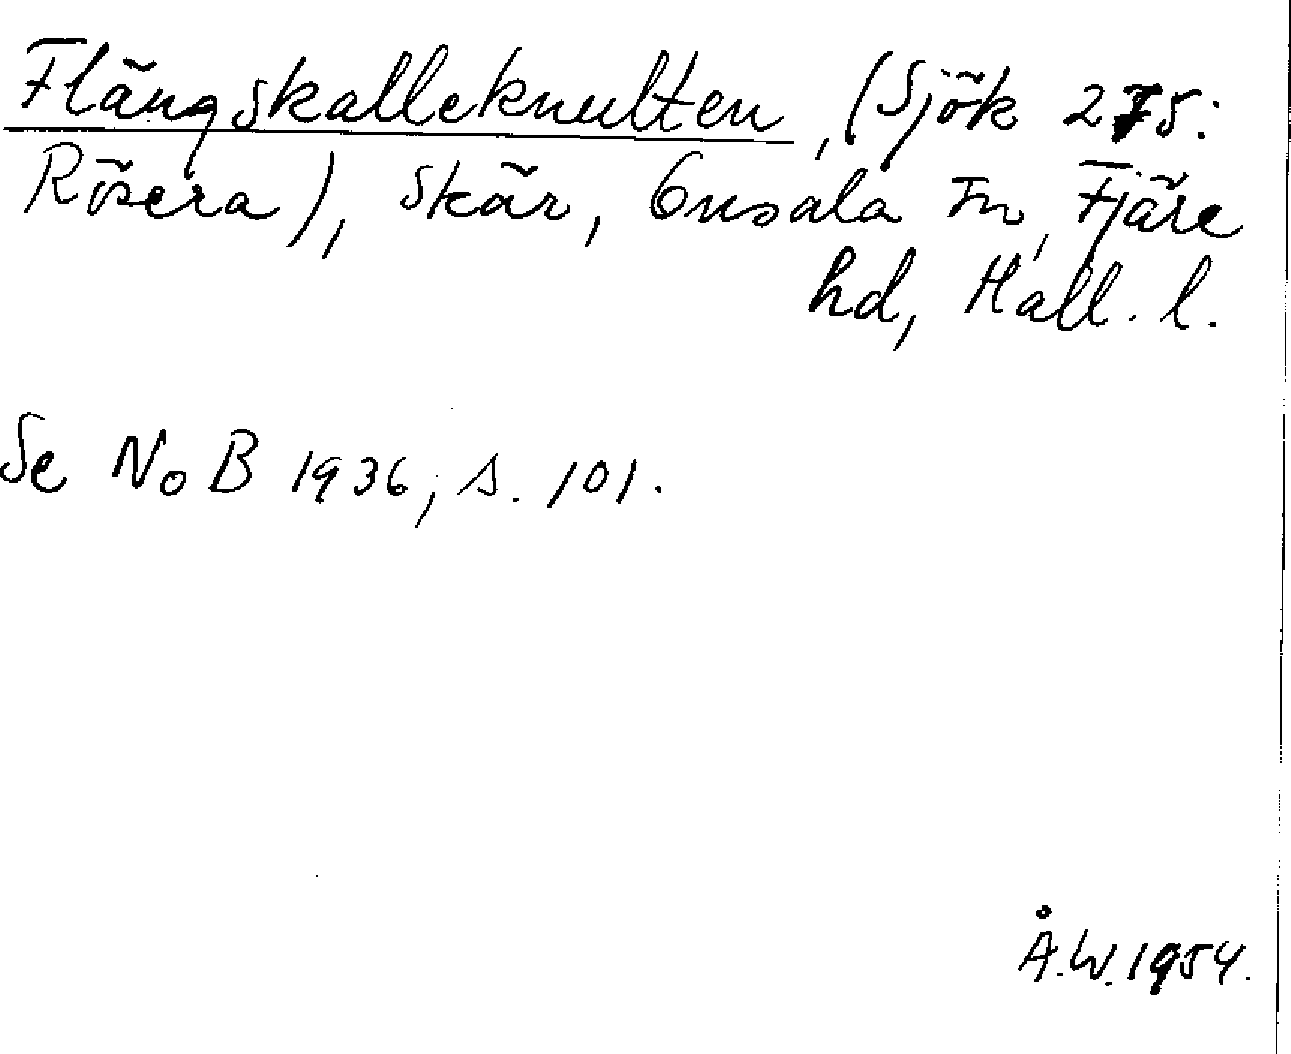 Flängskalleknulten, (Sjök 275:
Rösera), skär, Onsala sn, Fjäre
hd, Hall. l.
Se NoB 1936, s. 101.
Å.W. 1954.